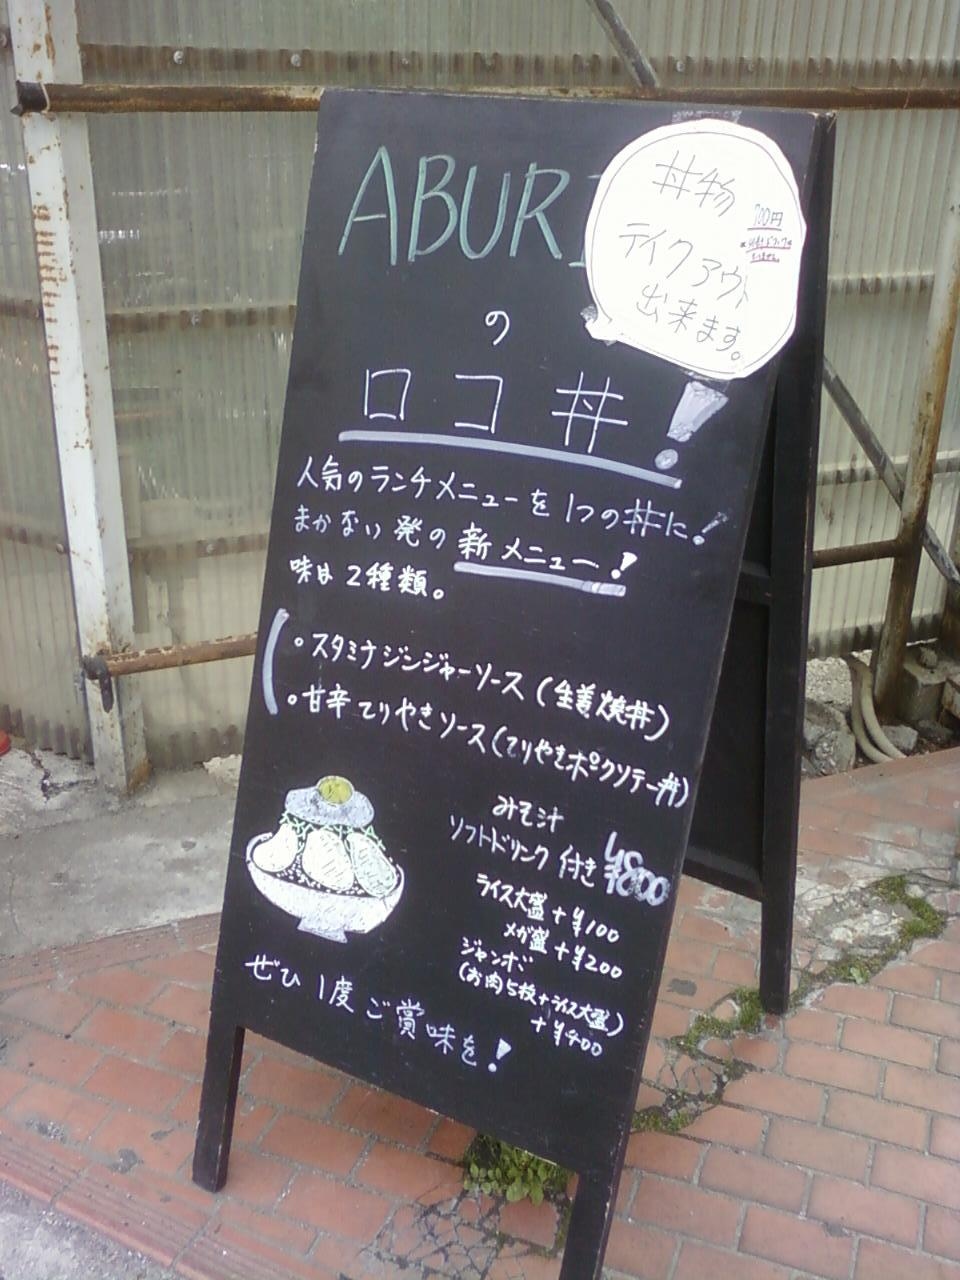 ABURI
の
ロコ丼!
人気のランチメニューを1つの丼に!
まかない発の新メニュー!
味は2種類。
。スタミナジンジャーソース(生姜焼丼)
。甘辛てりやきソース(てりやきポークソテー丼)
みそ汁
ソフトドリンク付き ¥800
ライス大盛+¥100
メガ盛+¥200
ジャンボ
(お肉5枚+ライス大盛)
+¥400
ぜひ1度ご賞味を!
丼物
700円
テイクアウト
出来ます。